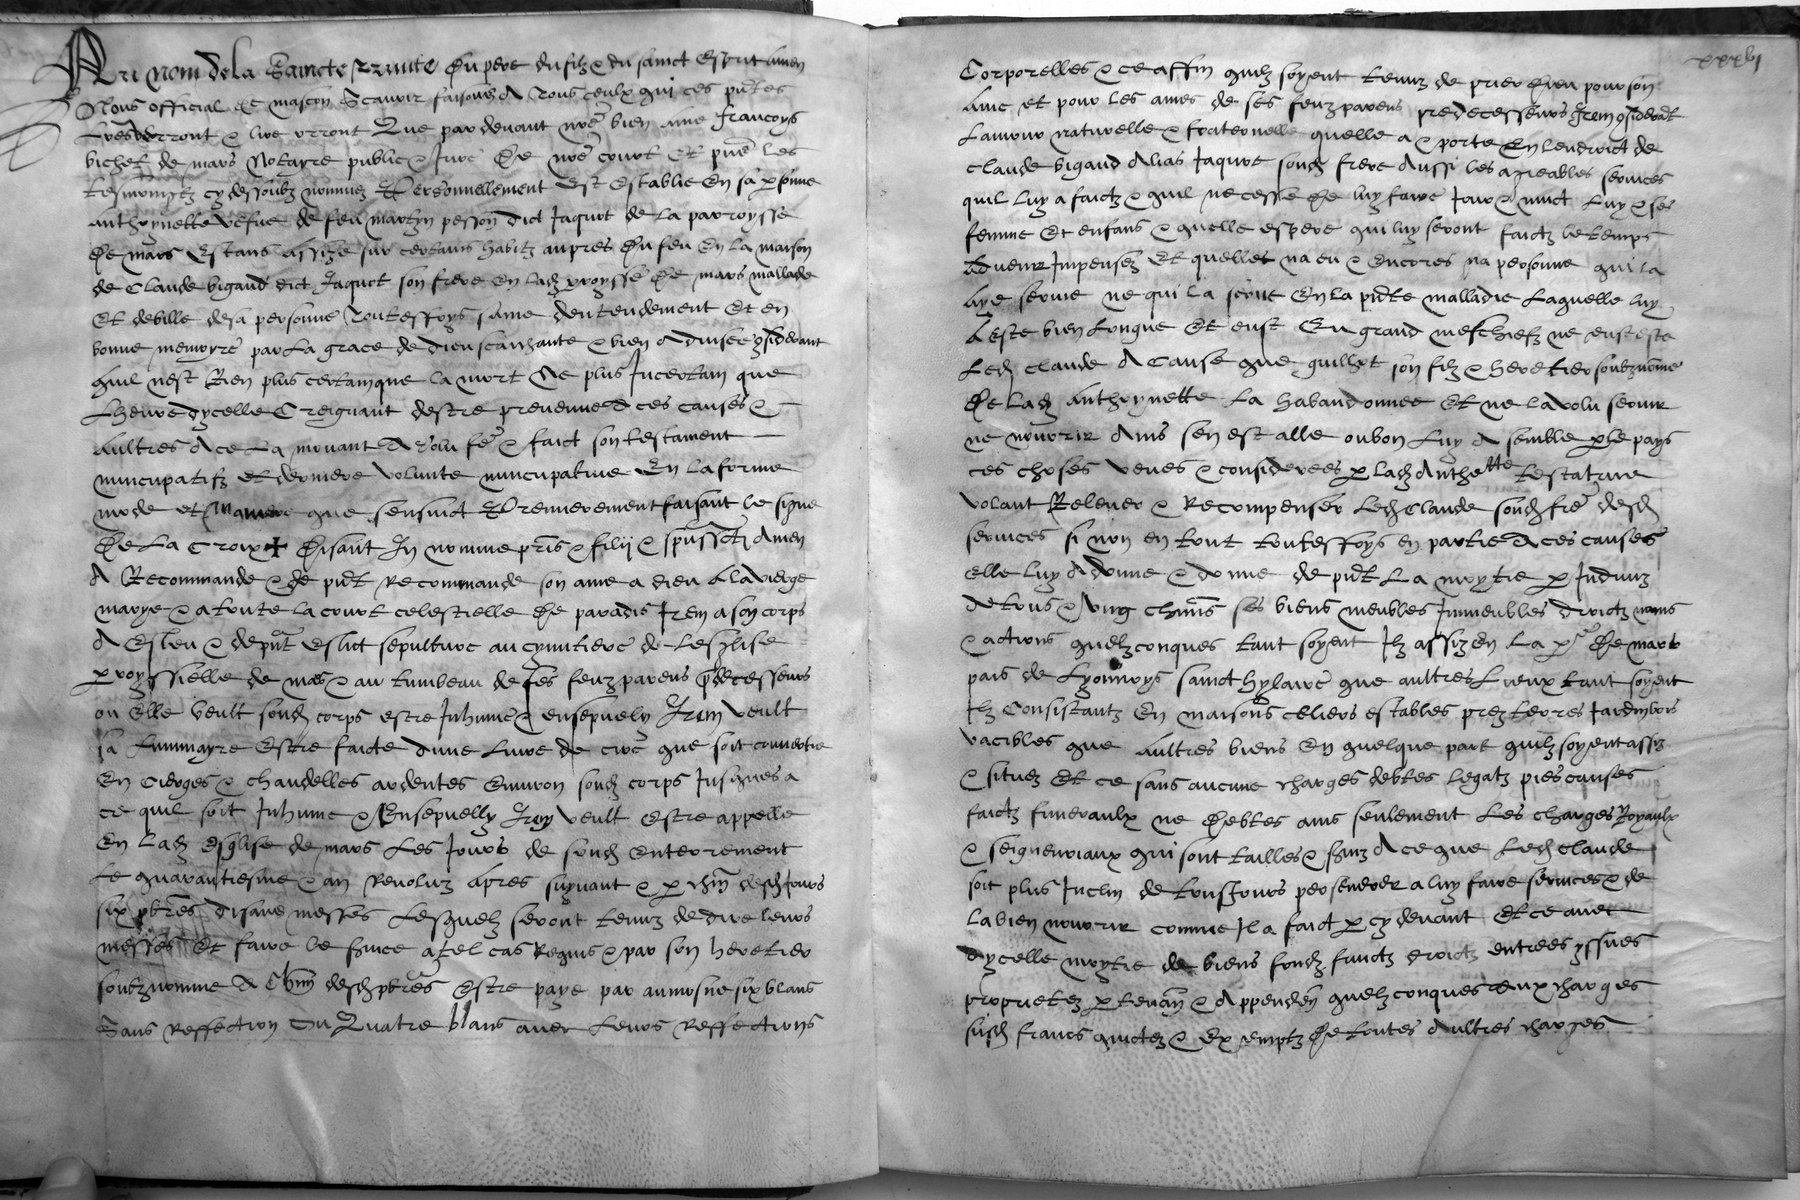 Au nom de la Saincte Trinite Du pere du filz & du sainct Esprit Amen
Nous official de mascon Scavoir faisons A tous ceulx qui ces pntes
verront & lire orront Que par devant nre bien aime Francoys
bichet de mars Notayre public & Jure De nre court Et pns les
tesmoingtz cy dessoubz nommez Personnellement est establie En sa psonne
anthoynette vefve de feu martin pesson dict Jaquot de la parroysse
De mars Estans assize sur certains habitz aupres Du feu En la maison
de Claude bigaud dict Jaquot son frere En lad parroysse De mars mallade
Et debille de sa personne Toutesfoys saine dentendement Et en
bonne memoyre par la grace de dieu scaichante & bien advisee gsiderant
quil nest Rien plus certain que la mort Ne plus Incertain que
Lheure dycelle Creignant destre prevenue A ces causes &
Aultres A ce La mouant A volu fe & faict son testament
nuncupatifz et derniere volunte nuncupative En la forme
mode et maniere que sensuict Premierement faisant le signe
De La Croix + Disant In nomine pris & filij & spussti Amen
A Recommande & de pnt Recommande son ame a dieu A la vierge
marye & a toute la court celestielle De paradis Item a son corps
A Esleu & de pnt eslict sepulture au cymitiere de Lesglise
parroyssielle de mars & au tumbeau de ses feuz parens predecesseurs
ou Elle veult sond corps estre Inhume & ensepuely Item veult
sa Luminayre Estre faicte dune Livre de cire que soit convertie
En cierges & chandelles ardentes Environ sond corps Jusques a
ce quil soit Inhume & Ensepuelly Item veult Estre appelle
En lad Esglise de mars Les Jours de sond Enterrement
Le quarantiesme & an Revoluz apres suyvant & p chun desd Jours
six pbres disans messes Lesquelz seront tenuz de dire leurs
messes Et faire le service a tel cas Requis & par son heretier
soubznomme A Chun desd pbres Estre paye par aumosne six blans
Sans Reffection Ou Quatre blans avec Leurs Reffections
xxxvj
Corporelles & ce affin quilz soyent tenuz de prier Dieu pour son
Ame et pour les ames de ses feuz parens predecesseurs Item gsiderant
Lamour naturelle & fraternelle quelle a & porte En lendroict de
Claude bigaud Alias Jaquot sond frere Aussi les agreables services
quil luy a faictz & quil ne cesse De luy faire Jour & nuict Luy & ses
femme Et enfans & quelle espere qui luy seront faictz le temps
Advenir Impensez Et quelle na eu & Encores na personne qui la
Aye servie ne qui la serve En la pnte malladie Laquelle luy
A este bien Longue Et eust Eu grand meschief ne eust este
Led Claude A Cause que guillot son filz & heretier soubznomme
De lad Anthoynette La habandonnee Et ne la volu servir
ne nourrir Ains sen est alle ou bon Luy A semble p le pays
Ces choses veues & considerees p lad Anthette testatrice
volant Relever & Recompenser Led Claude sond fre desd
services si non en tout toutesfoys en partie A ces causes
Elle luy A donne & donne de pnt La moytie p Indivuz
De tous & Ung chuns ses biens meubles Immeubles droictz noms
& actions quelzconques tant soyent Ilz assiz En La pr De mars
pais de Lyonnoys sainct hylaire que aultres Lieux tant soyent
Ilz Consistantz En maisons celiers estables prez terres Jardin boys
vacibles que Aultres biens En quelque part quilz soyent assiz
& situez Et ce sans aucune charges debtes legatz pies causes
faictz funeraulx ne Debtes ains seulement Les charges Royaulx
& seigneuriaux qui sont tailles & servis A ce que Led Claude
soit plus Inclin de tousjours perseverer a luy faire services & de
la bien nourrir comme Il a faict p cy devant Et ce avec
dycelle moytie de biens fondz fruictz droictz entrees yssues
proprietez p tenan & Appenden quelzconques Eux charges
susd francs quictez & Exemptz De toutes Aultres charges